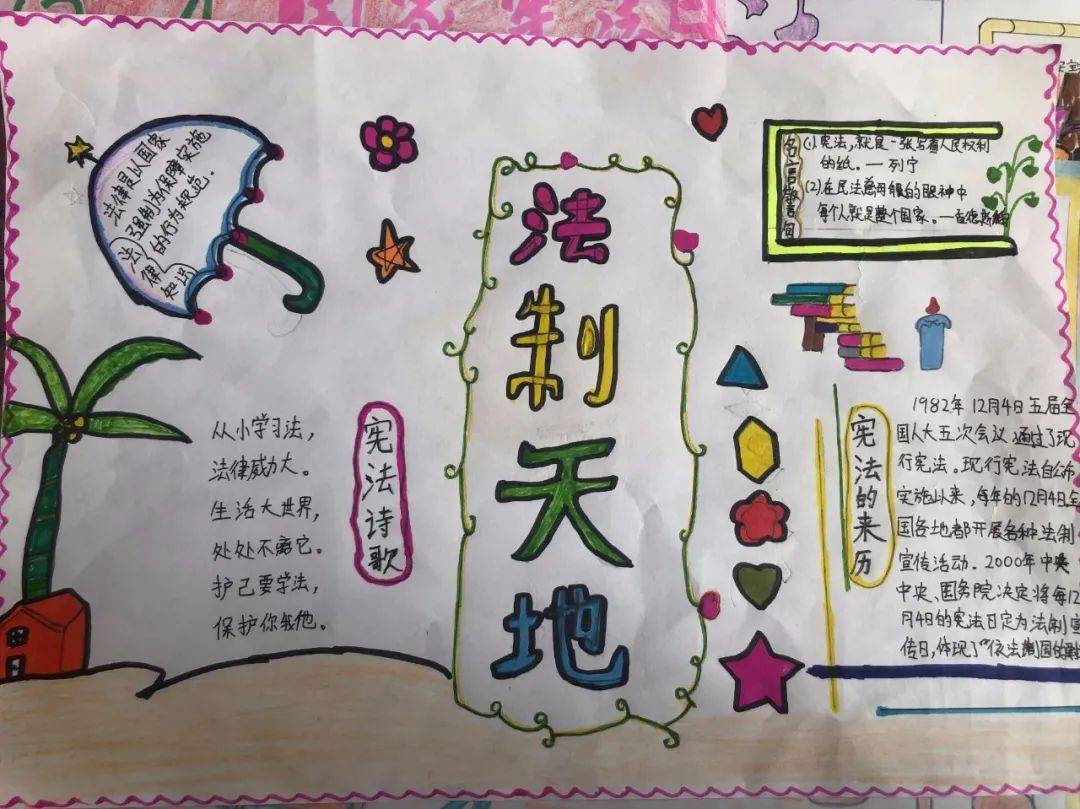 法律是以国家
强制为保障实施
的行为规范.
法律
知识
法制天地
名言警句
(1)宪法,就是一张写着人民权利
的纸。一列宁
(2)在民法慈母般的眼神中
每个人就是整个国家。一孟德斯鸠
宪法诗歌
从小学习法,
法律威力大。
生活大世界,
处处不离它。
护己要学法,
保护你我他。
宪法的来历
1982年12月4日五届全
国人大五次会议通过了现
行宪法。现行宪法自公布
实施以来,每年的12月4日全
国各地都开展各种法制
宣传活动.2000年中央
中央、国务院决定将每12
月4日的宪法日定为法制宣
传日,体现了“依法制国的